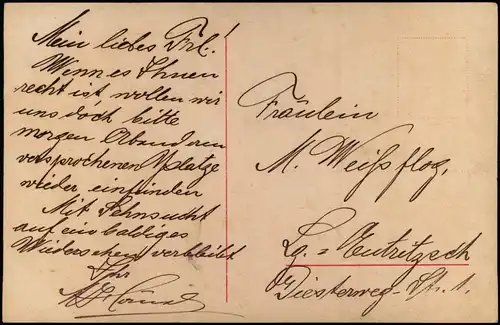 Mein liebes Frl.!
Wenn es Ihnen
recht ist wollen wir
uns doch bitte
morgen Abend am
versprochenen Platze
wieder einfinden
Mit Sehnsucht
auf ein baldiges
Wiedersehen verbleibt
Ihr
Fräulein
M. Weißflog,
Lg.=Eutritzsch
Diesterweg-Str. 1.